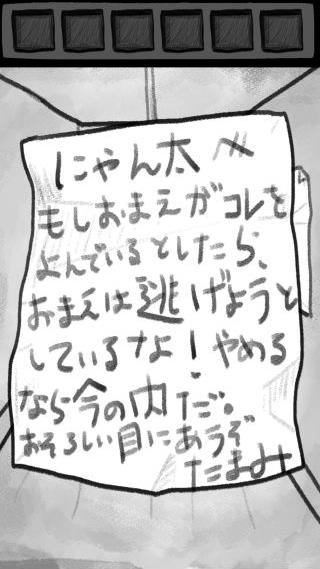 にゃん太へ
もしおまえがコレを
よんでいるとしたら、
おまえは逃げようと
しているナよ！やめる
なら今の内だ。
おそろしい目にあうぞ
たまみ